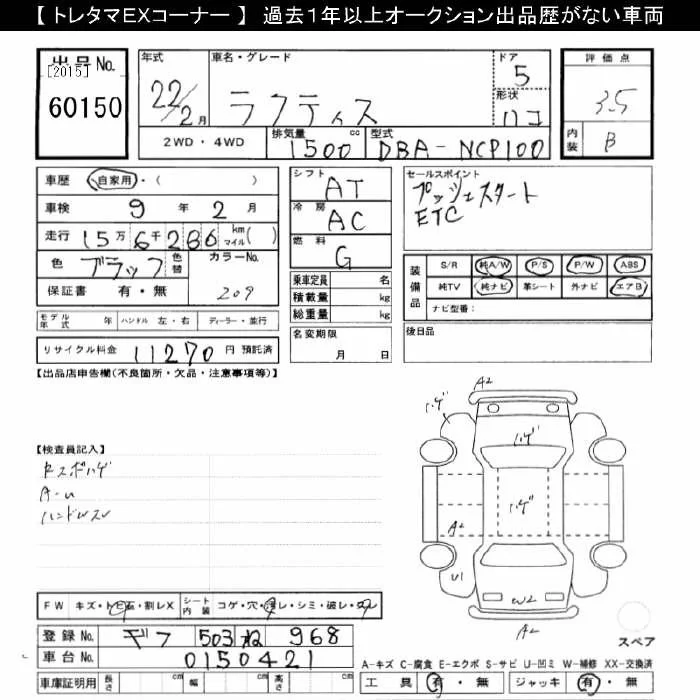 【トレタマEXコーナー】 過去1年以上オークション出品歴がない車両
出品No.
[2015]
60150
年式
22/2月
車名・グレード
ラクティス
ドア
5
形状
ハコ
評価点
3.5
内装
B
2WD・4WD
排気量 cc
1500
型式
DBA-NCP100
車歴 自家用・( )
車検 9年2月
走行 15万6千286 km マイル( )
色 ブラック 色替
カラーNo.
209
保証書 有・無
シフト
AT
冷房
AC
燃料
G
乗車定員 名
積載量 kg
総重量 kg
セールスポイント
プッシュスタート
ETC
装備品
S/R 純A/W P/S P/W ABS
純TV 純ナビ 革シート 外ナビ エアB
ナビ型番:
モデル年式 年 ハンドル 左・右 ディーラー・並行
名変期限
月 日
後日品
リサイクル料金 11270円 預託済
【出品店申告欄(不良箇所・欠品・注意事項等)】
【検査員記入】
ハンドルスレ
A2
ハゲ
ハゲ
ハゲ
A2
U1
W2
A2
スペア
FW キズ・トビ石・割レX シート内装 コゲ・穴・汚レ・シミ・破レ・スレ
登録No. 503 ね 968
車台No. 0150421
車庫証明用 長さ cm 幅 cm 高さ cm
A-キズ C-腐食 E-エクボ S-サビ U-凹ミ W-補修 XX-交換済
工具 有・無 ジャッキ 有・無